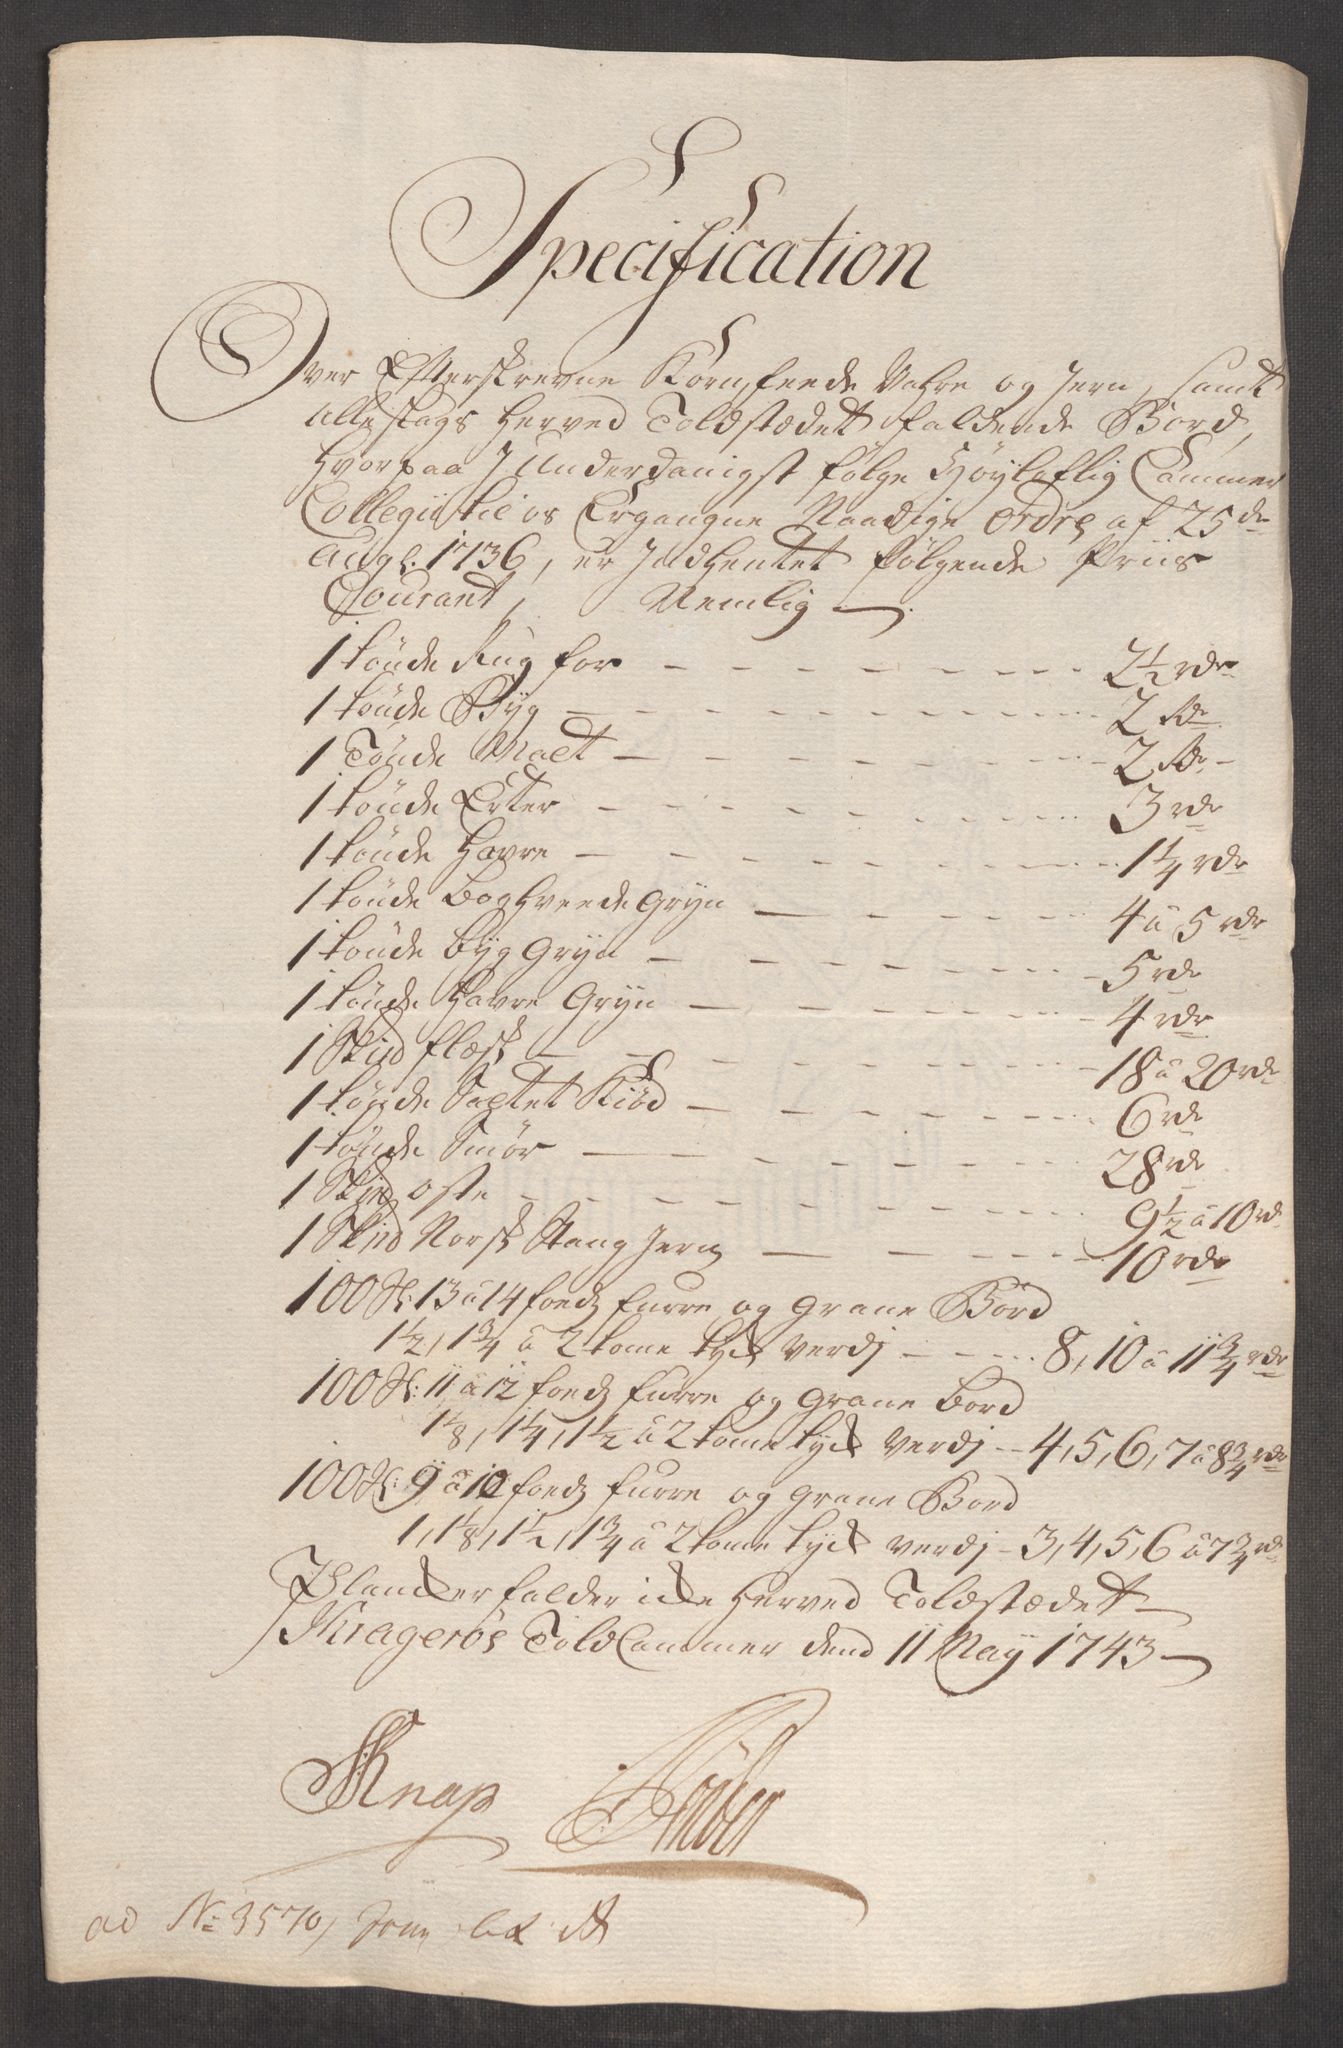 Specification
Over Efterskrevne Korn, feede Vahre og Jern, samt
alle slags herved Toldstædet faldende Bord,
hvorpaa J Underdanigst følge Høyloflig Cammer
Collegii til os Ergangne Naadige Ordre af 25de
Augl. 1736, er Jndhentet følgende Priis
Courant, Nemlig
1 tønde Rug for - 2 1/2 rdr
1 tønde Byg - 2 Rdr
1 Tønde Malt - 2 Rdr
1 tønde Erter - 3 rdr
1 tønde Havre - 1 1/4 rdr
1 tønde Boghveede Gryn - 4 a 5 rdr
1 tønde byg Gryn - 5 rdr
1 tønde Havre Gryn - 4 rdr
1 Skud flæsk - 18 a 20 rdr
1 tønde Saltet Kiød - 6 rdr
1 tønde Smør - 28 rdr
1 Skud oste - 9 1/2 a 10 rdr
1 Skud Norsk Stang Jern - 10 rdr
100 St: 13 a 14 foeds furre og Grane Bord
1 1/2, 1 3/4 a 2 tome tyck verdj - 8, 10 a 11 3/4 rdr
100 St: 11 a 12 foeds furre og Grane bord
1 1/8, 1 1/4, 1 1/2 a 2 tome tyck verdj - 4, 5, 6, 7 a 8 3/4 rdr
100 St: 9 a 10 foeds furre og Grane Bord
1, 1 1/8, 1 1/2, 1 3/4 a 2 tome tyck verdj - 3, 4, 5, 6 a 7 3/4 rdr
Plancker falder icke herved Toldstædet
Kragerøes Told Cammer dend 11 May 1743
Knap
ad No 3570